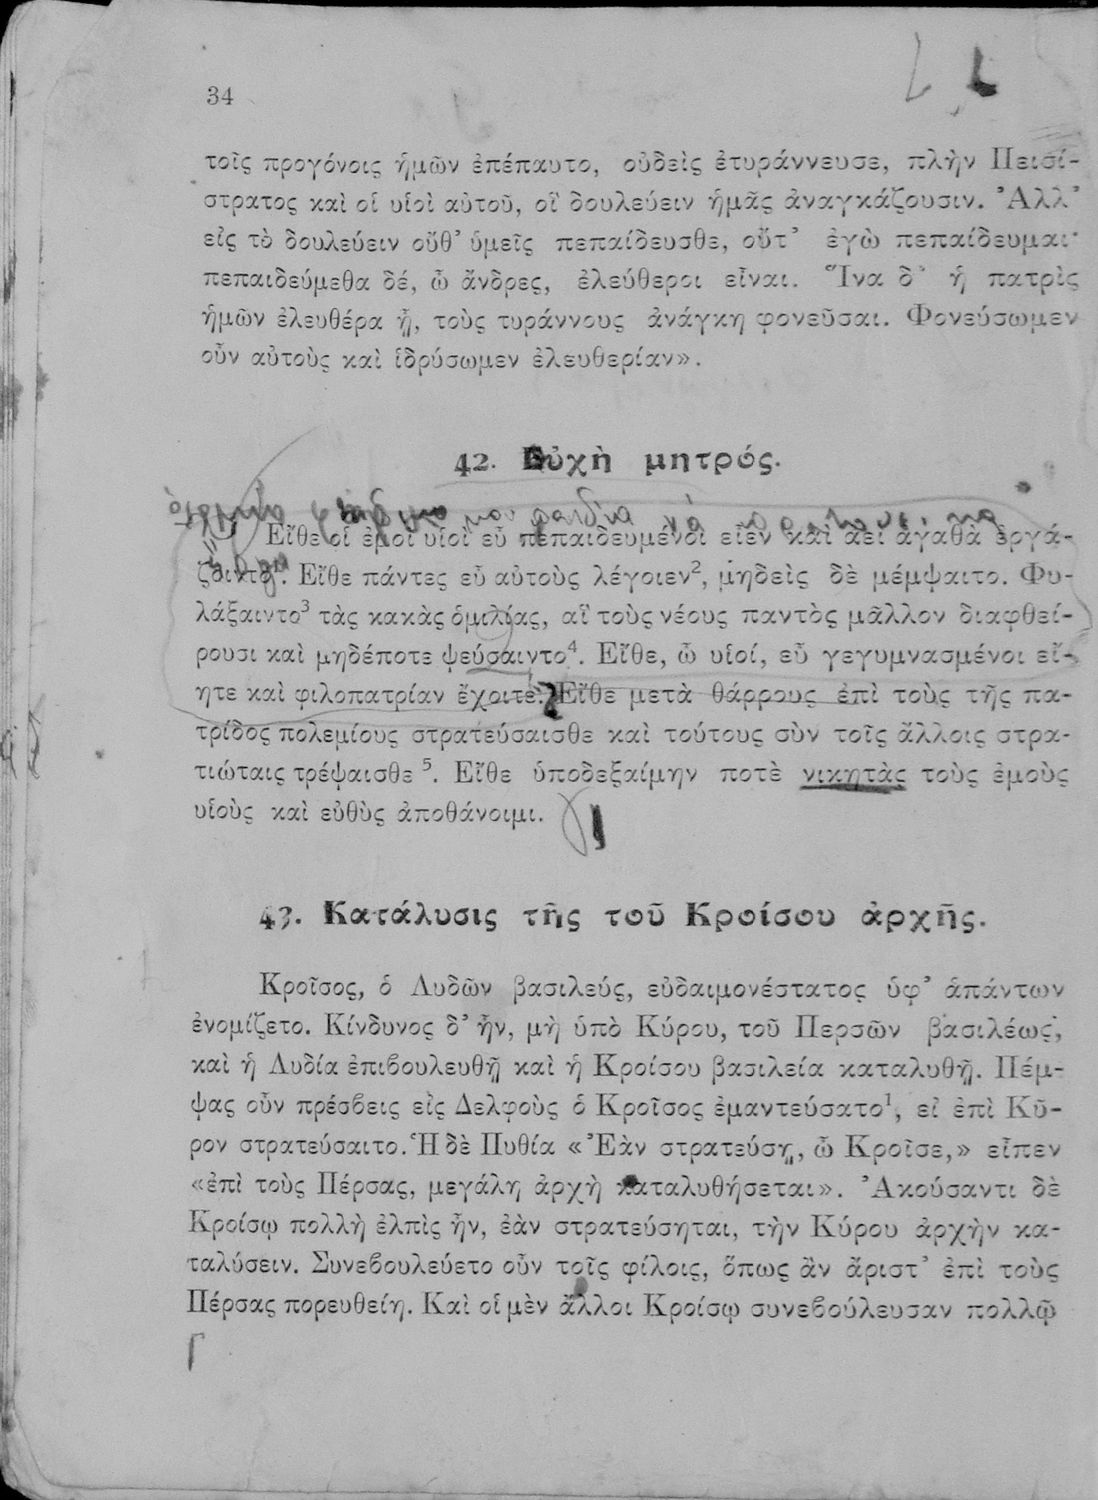 34
τοῖς προγόνοις ἡμῶν ἐπέπαυτο, οὐδεὶς ἐτυράννευσε, πλὴν Πεισί-
στρατος καὶ οἱ υἱοὶ αὐτοῦ, οἳ δουλεύειν ἡμᾶς ἀναγκάζουσιν. Ἀλλ’
εἰς τὸ δουλεύειν οὔθ’ ὑμεῖς πεπαίδευσθε, οὔτ’ ἐγὼ πεπαίδευμαι·
πεπαιδεύμεθα δέ, ὦ ἄνδρες, ἐλεύθεροι εἶναι. Ἵνα δ’ ἡ πατρὶς
ἡμῶν ἐλευθέρα ᾖ, τοὺς τυράννους ἀνάγκη φονεῦσαι. Φονεύσωμεν
οὖν αὐτοὺς καὶ ἱδρύσωμεν ἐλευθερίαν».
42. Εὐχὴ μητρός.
Εἴθε οἱ ἐμοὶ υἱοὶ εὖ πεπαιδευμένοι εἶεν καὶ ἀεὶ ἀγαθὰ ἐργά-
ζοιντο¹. Εἴθε πάντες εὖ αὐτοὺς λέγοιεν², μηδεὶς δὲ μέμψαιτο. Φυ-
λάξαιντο³ τὰς κακὰς ὁμιλίας, αἳ τοὺς νέους παντὸς μᾶλλον διαφθεί-
ρουσι καὶ μηδέποτε ψεύσαιντο⁴. Εἴθε, ὦ υἱοί, εὖ γεγυμνασμένοι εἴ-
ητε καὶ φιλοπατρίαν ἔχοιτε. Εἴθε μετὰ θάρρους ἐπὶ τοὺς τῆς πα-
τρίδος πολεμίους στρατεύσαισθε καὶ τούτους σὺν τοῖς ἄλλοις στρα-
τιώταις τρέψαισθε⁵. Εἴθε ὑποδεξαίμην ποτὲ νικητὰς τοὺς ἐμοὺς
υἱοὺς καὶ εὐθὺς ἀποθάνοιμι.
43. Κατάλυσις τῆς τοῦ Κροίσου ἀρχῆς.
Κροῖσος, ὁ Λυδῶν βασιλεύς, εὐδαιμονέστατος ὑφ’ ἁπάντων
ἐνομίζετο. Κίνδυνος δ’ ἦν, μὴ ὑπὸ Κύρου, τοῦ Περσῶν βασιλέως,
καὶ ἡ Λυδία ἐπιβουλευθῇ καὶ ἡ Κροίσου βασιλεία καταλυθῇ. Πέμ-
ψας οὖν πρέσβεις εἰς Δελφοὺς ὁ Κροῖσος ἐμαντεύσατο¹, εἰ ἐπὶ Κῦ-
ρον στρατεύσαιτο. Ἡ δὲ Πυθία «Ἐὰν στρατεύσῃ, ὦ Κροῖσε,» εἶπεν
«ἐπὶ τοὺς Πέρσας, μεγάλη ἀρχὴ καταλυθήσεται». Ἀκούσαντι δὲ
Κροίσῳ πολλὴ ἐλπὶς ἦν, ἐὰν στρατεύσηται, τὴν Κύρου ἀρχὴν κα-
ταλύσειν. Συνεβουλεύετο οὖν τοῖς φίλοις, ὅπως ἂν ἄριστ’ ἐπὶ τοὺς
Πέρσας πορευθείη. Καὶ οἱ μὲν ἄλλοι Κροίσῳ συνεβούλευσαν πολλῷ